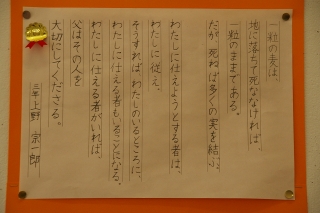 一粒の麦は、
地に落ちて死ななければ、
一粒のままである。
だが、死ねば多くの実を結ぶ。
わたしに仕えようとする者は、
わたしに従え。
そうすれば、わたしのいるところに、
わたしに仕える者もいることになる。
わたしに仕える者がいれば、
父はその人を
大切にしてくださる。
三年 上野 宗一郎